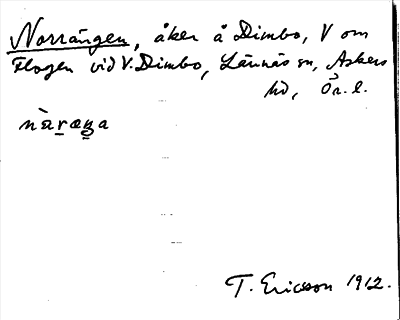 Norrängen, åker å Dimbo, V om
Flogen vid V. Dimbo, Lännäs sn, Askers
hd, Ör. l.
nàræŋa
T. Ericson 1912.